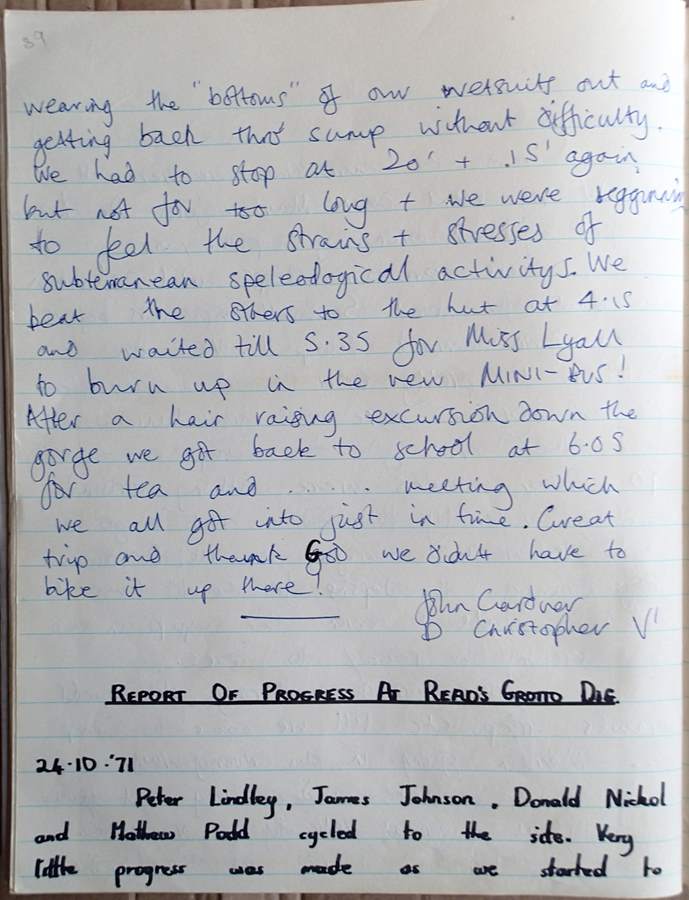 39
wearing the "bottoms" of our wetsuits out and
getting back thro' sump without difficulty.
We had to stop at 20' + .15' again,
but not for too long + we were beggining
to feel the strains + stresses of
subterranean speleological activitys. We
beat the others to the hut at 4.15
and waited till 5.35 for Miss Lyall
to burn up in the new MINI-BUS!
After a hair raising excursion down the
gorge we got back to school at 6.05
for tea and ...... meeting which
we all got into just in time. Great
trip and thank God we didn't have to
bike it up there!
John Gardner
D Christopher V'
REPORT OF PROGRESS AT READ'S GROTTO DIG.
24.10.'71
Peter Lindley, James Johnson, Donald Nickol
and Mathew Podd cycled to the site. Very
little progress was made as we started to